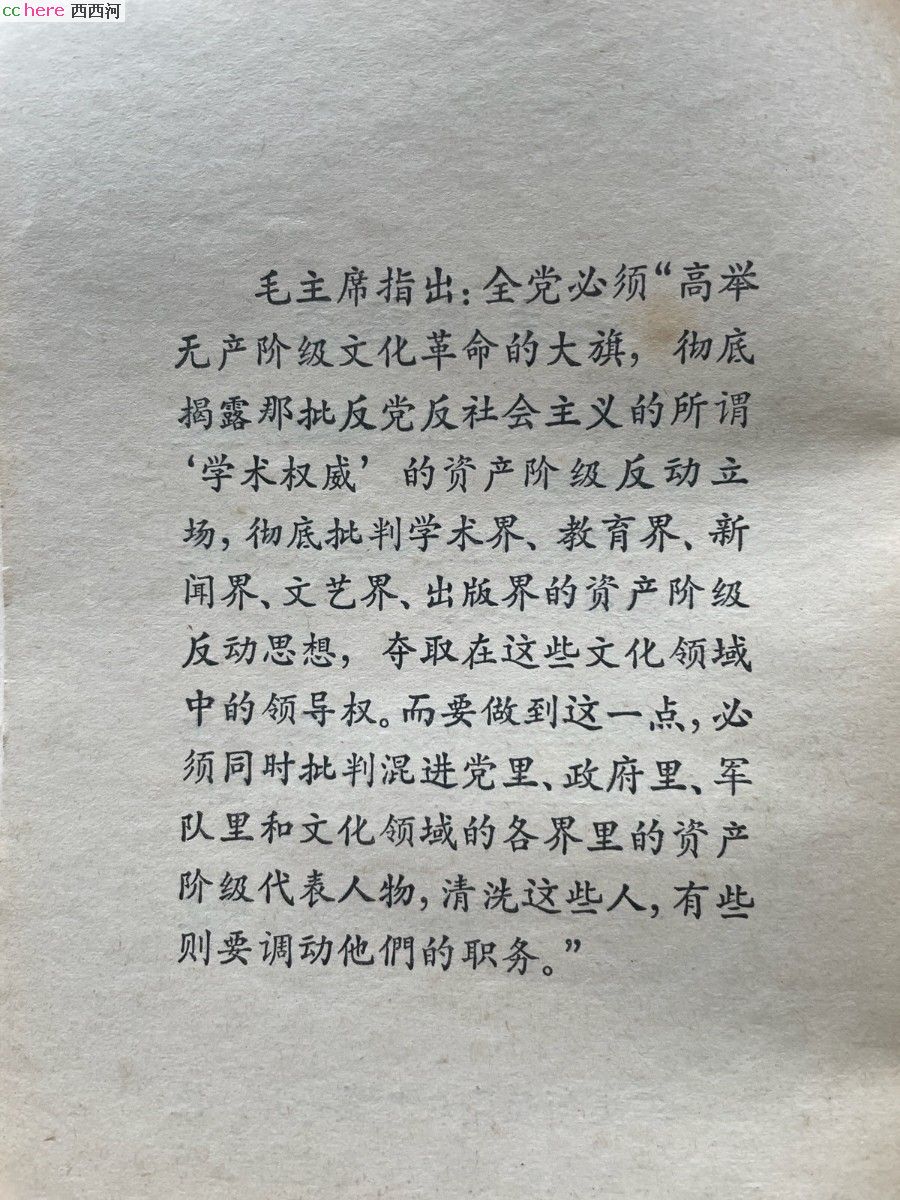 cchere 西西河
毛主席指出：全党必须“高举
无产阶级文化革命的大旗，彻底
揭露那批反党反社会主义的所谓
‘学术权威’的资产阶级反动立
场，彻底批判学术界、教育界、新
闻界、文艺界、出版界的资产阶级
反动思想，夺取在这些文化领域
中的领导权。而要做到这一点，必
须同时批判混进党里、政府里、军
队里和文化领域的各界里的资产
阶级代表人物，清洗这些人，有些
则要调动他們的职务。”